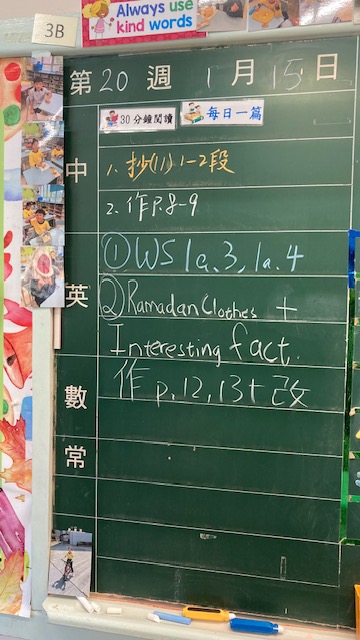 Always use
kind words
3B
第 20 週 1 月 15 日
30分鐘閱讀 每日一篇
中
1. 抄(11) 1-2段
2. 作P.8-9
① WS 1a.3, 1a.4
英
② Ramadan Clothes +
Interesting fact.
數
作 p.12, 13+改
常